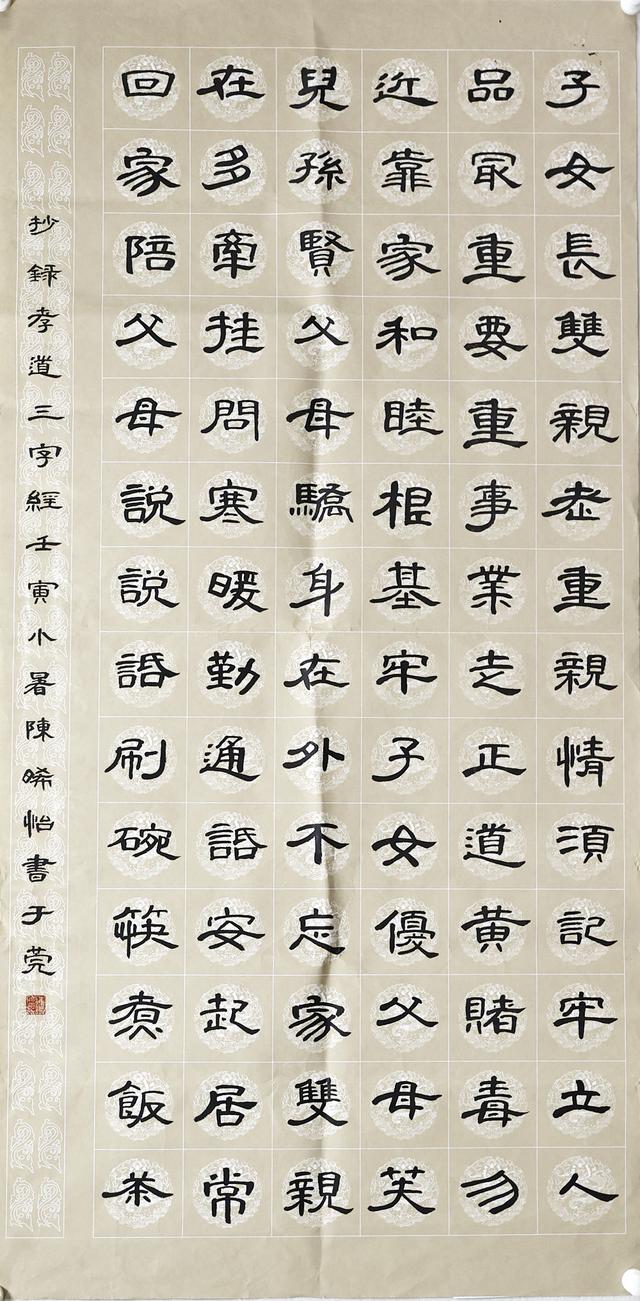 子女長雙親老重親情須記牢立人
品冣重要重事業走正道黄賭毒勿
近靠家和睦根基牢子女優父母笑
兒孫賢父母驕身在外不忘家雙親
在多牽挂問寒暖勤通話安起居常
回家陪父母説説話刷碗筷煮飯茶
抄錄孝道三字經壬寅小暑陳晞怡書于莞